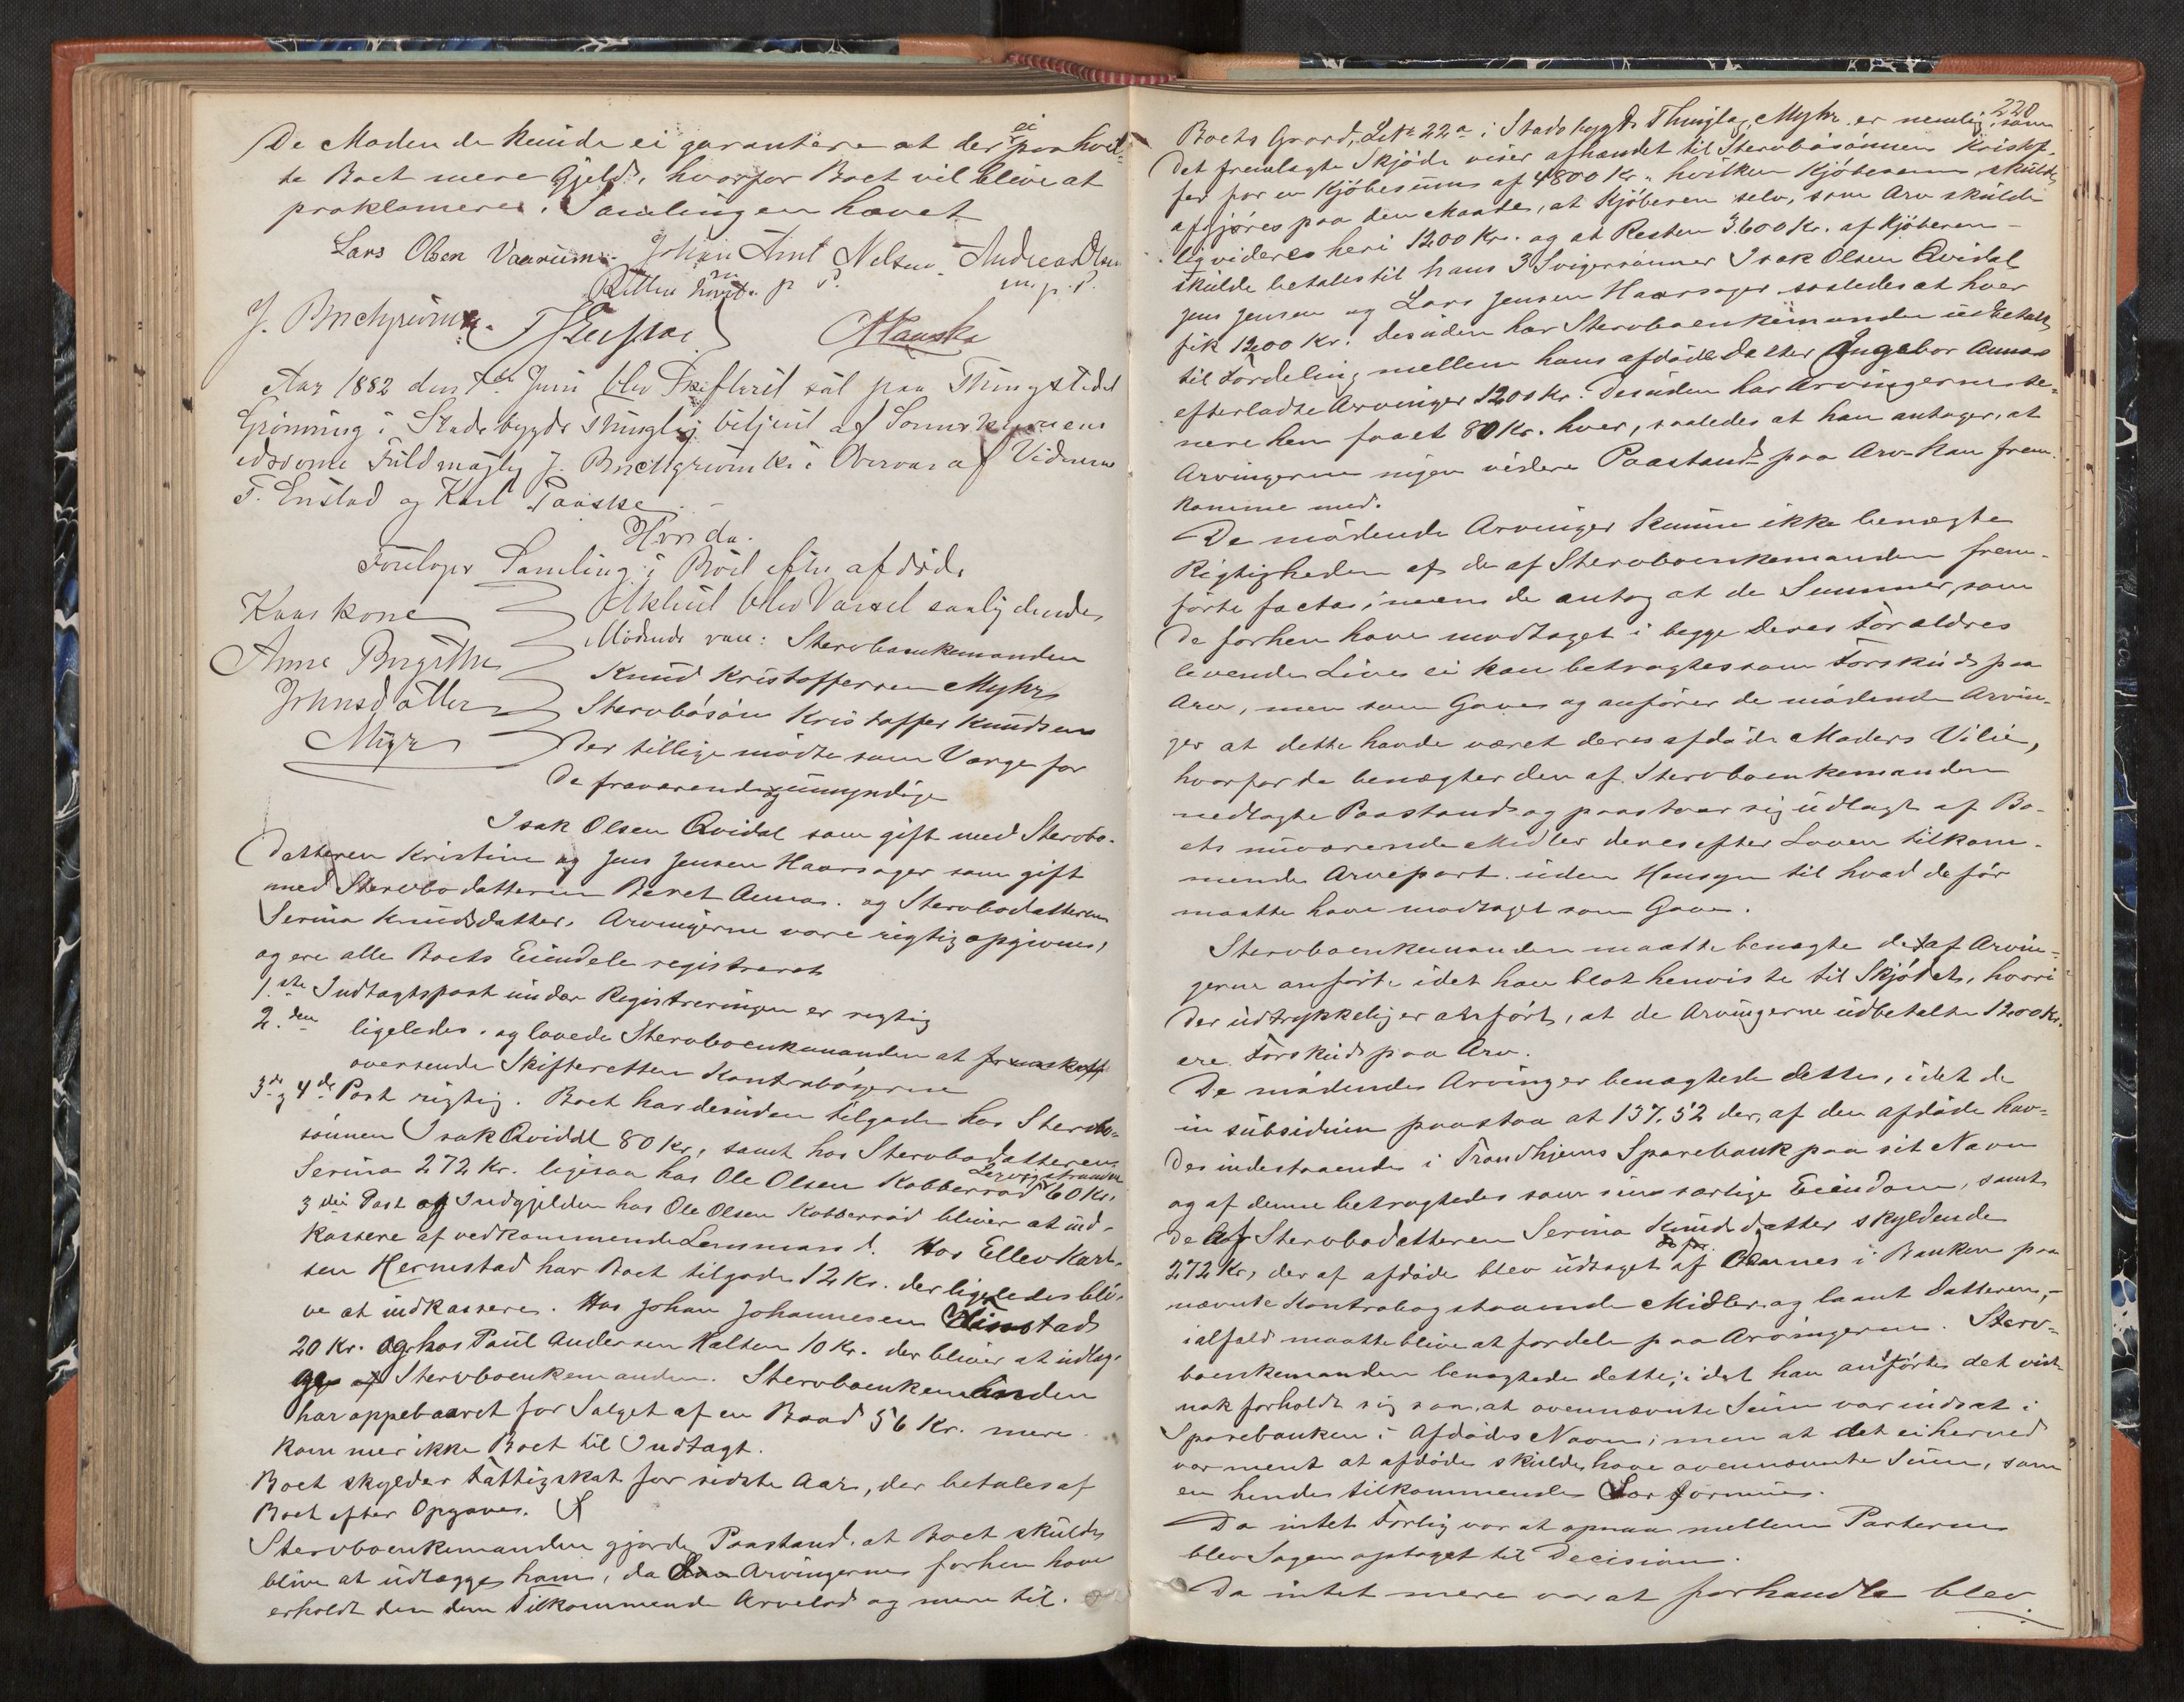 De Mødende kunde ei garantere at der ei paahvil-
te Boet mere Gjeld, hvorfor Boet vil blive at
proklamere. Samlingen hævet
Lars Olsen Vaarum. Johan Arnt Nelsen. Andreas Olsen
m. p. P. m. p. P.
Aar 1882 den 7de Juni blev Skifteret sat paa Thingstedet
Grønning i Stadsbygds Thinglag betjent af Sorenskriverens
edsvorne Fuldmægtig J. Buchgrevink i Overvær af Vidnerne
F. Enstad og Karl Paaske. –
Hvorda.
Foretoges Samling i Boet efter afdøde
Kaarkone
Anne Birgithe
Johnsdatter
Myhr
Aktuit blev Varsel saalydende
Mødende var: Stervboenkemanden
Knud Kristoffersen Myhr
Stervbosøn Kristoffer Knudsen
der tillige mødte som Værge for
de fraværende og umyndige
Isak Olsen Qvidal som gift med Stervbo-
datteren Kristine og Jens Jensen Haarsager som gift
med Stervbodatteren Beret Anna. og Stervbodatteren
Serina Knudsdatter. Arvingerne vare rigtig opgivne,
og ere alle Boets Eiendele registreret
1.ste Indtagtspost under Registreringen er rigtig
2.den ligeledes. og lovede Stervboenkemanden at fremskaff
oversende Skifteretten Kontrabøgerne
3de og 4de Post rigtig. Boet har desuden tilgode hos Stervbo-
sønnen Isak Qvidal 80 Kr, samt hos Stervbodatteren
Serina 272 Kr. ligesaa hos Ole Olsen Kobberrød 60 Kr.
3die Post af Indgjelden hos Ole Olsen Kobberrød bliver at ind-
kassere af vedkommende Lensmand. Hos Ellev Karl-
sen Hernestad har Boet tilgode 12 Kr. der ligeledes bli-
ve at indkassere. Hos Johan Johannesen
20 Kr. og hos Paul Andersen Halten 10 Kr. der bliver at udlæg-
ge af Stervboenkemanden. Stervboenkemanden
har oppebaaret for Salget af en Baad 56 Kr. mere
kommer ikke Boet til Indtægt.
Boet skylder Fattigskat for sidste Aar, der betales af
Boet efter Opgave.
Stervboenkemanden gjorde Paastand. at Boet skulde
blive at udlægges ham, da Arvingerne forhen have
erholdt den dem Tilkommende Arvelod og mere til.
220
Boets Gaard, LNr 22a i Stadsbygds Thinglag, Myhr er nemlig som
det fremlagte Skjøde viser afhændet til Stervbosønnen Kristof-
fer for en Kjøbesum af 4800 Kr. hvilken Kjøbesum skulde
afgjøres paa den Maade, at Kjøberen selv, som Arv skulde
ligvideres heri 1200 Kr. og at Resten 3.600 Kr. af Kjøberen –
skulde betales til hans 3 Svigersønner Isak Olsen Qvidal
Jens Jensen og Lars Jensen Haarsager saaledes at hver
fik 1200 Kr. Desuden har Stervboenkemanden udbetalt
til Fordeling mellem hans afdøde Datter Ingebor Annas
efterladte Arvinger 1200 Kr. Desuden har Arvingerne se-
nere hen faaet 80 Kr. hver, saaledes at han antager, at
Arvingerne ingen videre Paastand paa Arv kan frem-
komme med.
De mødende Arvinger kunne ikke benægte
Rigtigheden af de af Stervboenkemanden frem-
førte facta, imens de antog at de Summer, som
de forhen have modtaget i begge deres Forældres
levende Live ei kan betragtes som Forskud paa
Arv, men som Gave og anfører de mødende Arvin-
ger at dette havde været deres afdøde Moders Vilie,
hvorfor de benægter den af Stervboenkemanden
nedlagte Paastand og paastaar sig udlagt af Bo-
ets nuværende Midler deres efter Loven tilkom-
mende Arvepart. uden Hensyn til hvad de før
maatte have modtaget som Gave.
Stervboenkemanden maatte benægte det af Arvin-
gerne anførte idet han blot henviste til Skjødet, hvori
der udtrykkelig er anført, at de Arvingerne udbetalte 1200 Kr.
ere Forskud paa Arv.
De mødende Arvinger benægtede dette, idet de
in subsidium paastaa at 137.52 der, af den afdøde hav-
des indestaaende i Trondhjems Sparebank paa sit Navn
og af denne betragtedes som sin særlige Eiendom, samt
de af Stervbodatteren Serina Knudsdatter skyldende
272 Kr, der af afdøde blev udtaget af dennes i Banken paa
nævnte Kontrabog staaende Midler og laant Datteren,-
ialfald maatte blive at fordele paa Arvingerne. Sterv-
boenkemanden benægtede dette, idet han anførte det vist-
nok forholdt sig saa, at ovennævnte Sum var indsat i
Sparebanken i Afdødes Navn, men at det ei herved
var ment at afdøde skulde have ovennævnte Sum, som
en hende tilkommende Særformue.
Da intet Forlig var at opnaa mellem Parterne
blev Sagen optaget til Decision.
Da intet mere var at forhandle blev